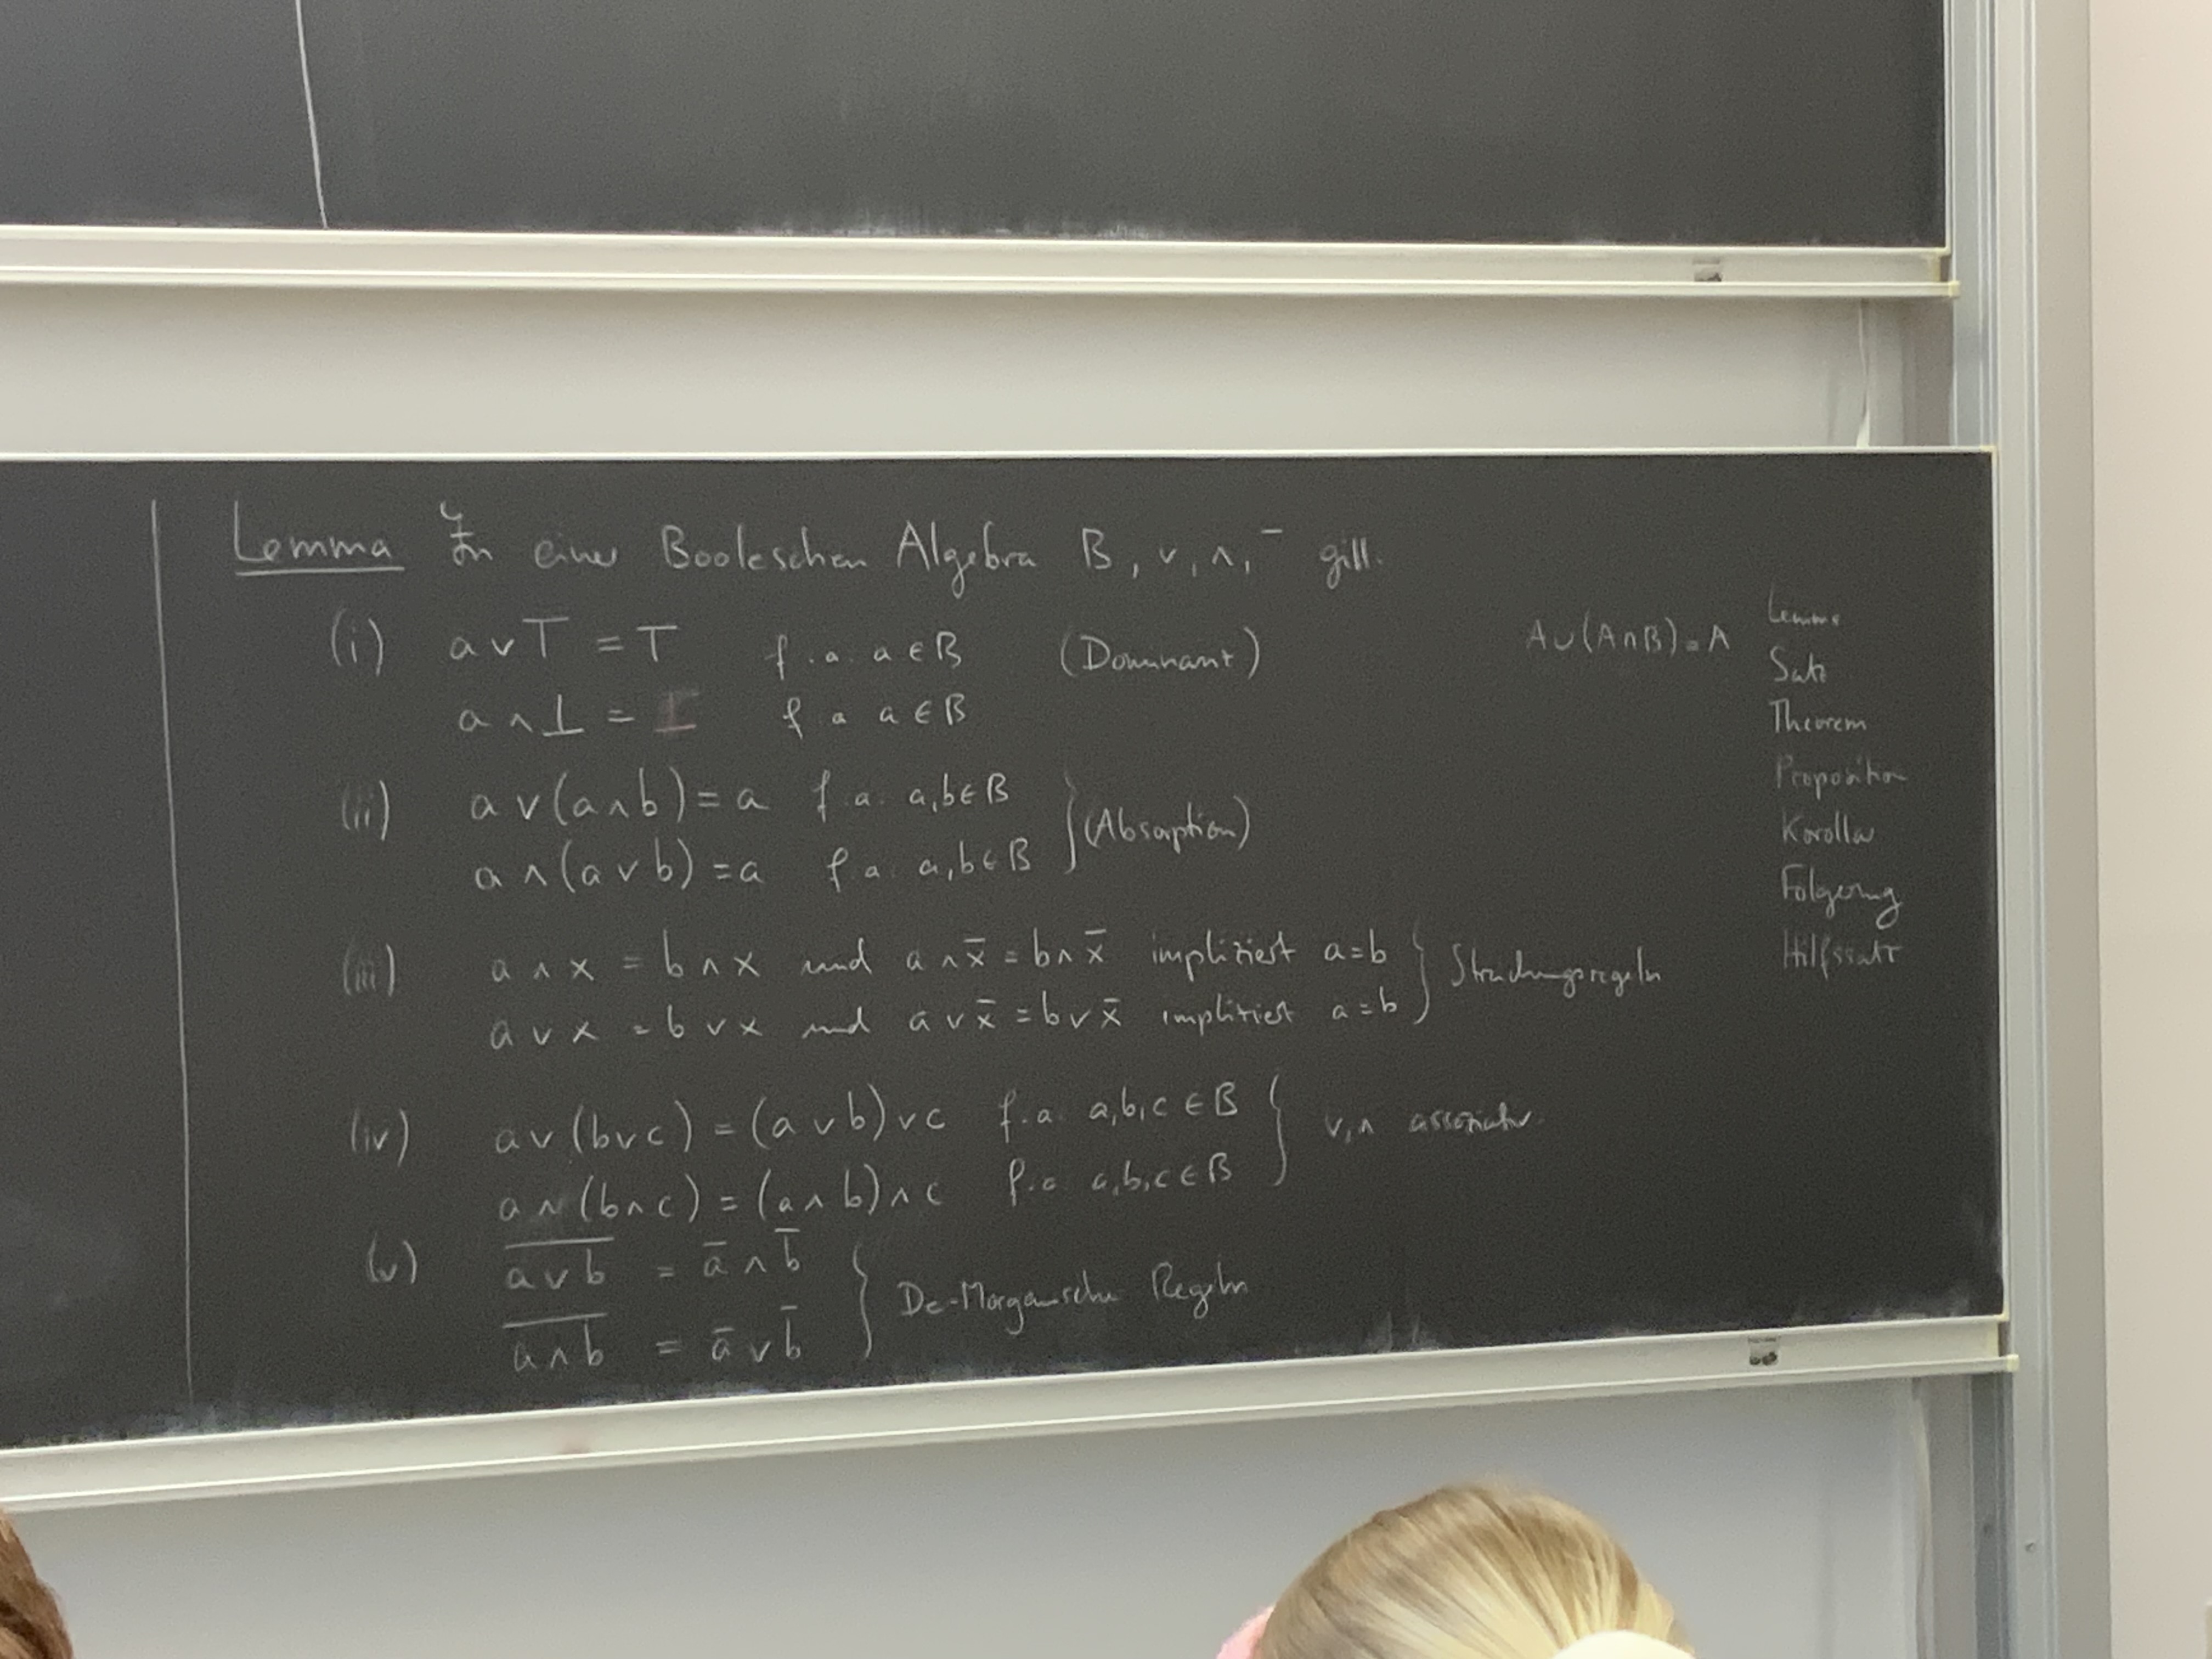 Lemma In einer Booleschen Algebra B, ∨, ∧, ¯ gilt.
(i) a ∨ ⊤ = ⊤ f.a. a ∈ B (Dominant)
a ∧ ⊥ = ⊥ f a a ∈ B
(ii) a ∨ (a ∧ b) = a f.a. a,b ∈ B
a ∧ (a ∨ b) = a f.a. a,b ∈ B
(Absorption)
(iii) a ∧ x = b ∧ x und a ∧ x̄ = b ∧ x̄ impliziert a = b
a ∨ x = b ∨ x und a ∨ x̄ = b ∨ x̄ impliziert a = b
Streichungsregeln
(iv) a ∨ (b ∨ c) = (a ∨ b) ∨ c f.a. a,b,c ∈ B
a ∧ (b ∧ c) = (a ∧ b) ∧ c f.a. a,b,c ∈ B
∨, ∧ assoziativ.
(v) \overline{a ∨ b} = ā ∧ b̄
\overline{a ∧ b} = ā ∨ b̄
De-Morgansche Regeln
A ∪ (A ∩ B) = A
Lemma
Satz
Theorem
Proposition
Korollar
Folgerung
Hilfssatz